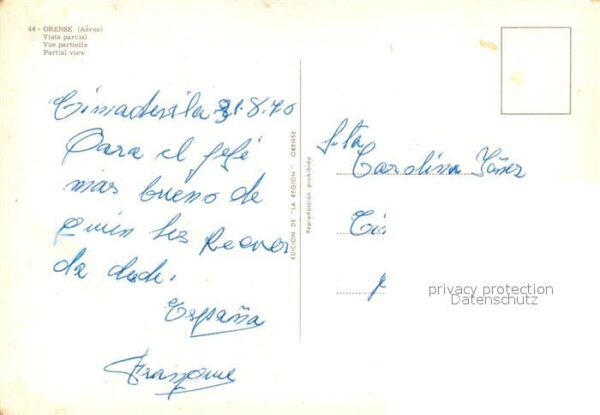 44 - ORENSE (Aérea)
Vista parcial
Vue partielle
Partial view
31.8.70
Para el jefe
mas bueno de
quien les Recuer
da desde.
España
EDICION DE "LA REGION" ORENSE
Reproducción prohibida
Srta
Carolina Yáñez
privacy protection
Datenschutz